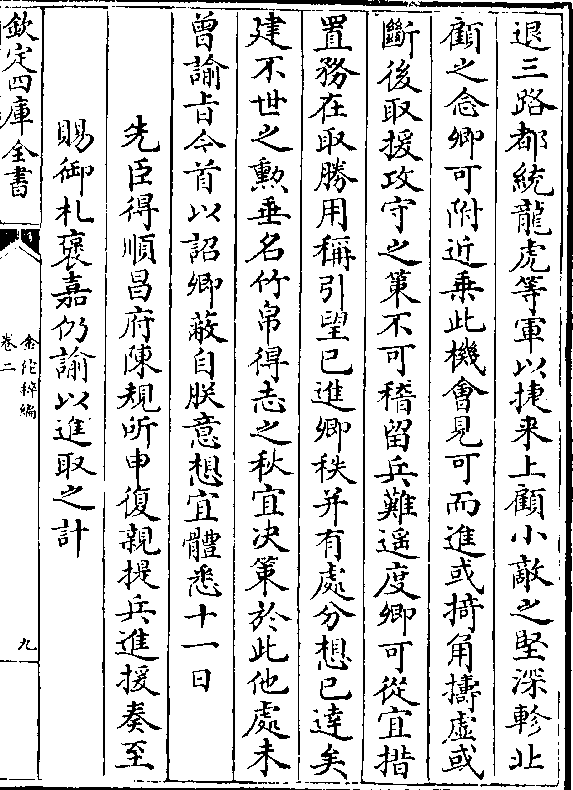 退三路都統龍虎等軍以捷来上顧小敵之堅深軫北
顧之念卿可附近乗此機會見可而進或掎角擣虛或
斷後取援攻守之策不可稽留兵難遥度卿可從宜措
置務在取勝用稱引望已進卿秩并有處分想已逹矣
建不世之勲垂名竹帛得志之秋宜决策於此他處未
曾諭㫖今首以詔卿蔽自朕意想宜體悉十一日
先臣得順昌府陳規所申復親提兵進援奏至
賜御札褒嘉仍諭以進取之計
欽定四庫全書
金佗稡編
卷二
九